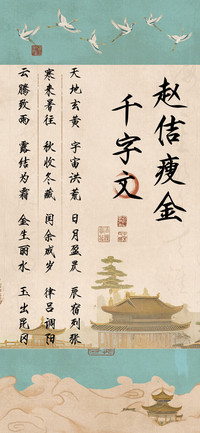 赵佶瘦金
千字文
天地玄黄 宇宙洪荒 日月盈昃 辰宿列张
寒来暑往 秋收冬藏 闰余成岁 律吕调阳
云腾致雨 露结为霜 金生丽水 玉出昆冈